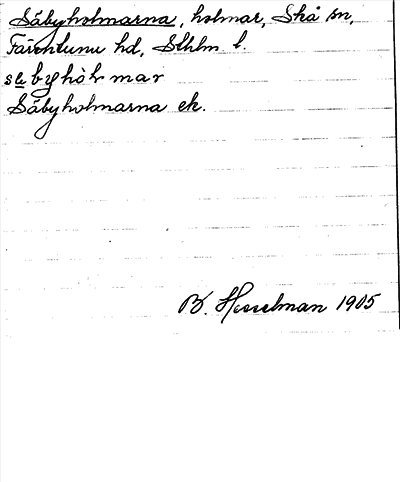 Säbyholmarna, holmar, Skå sn,
Färentuna hd, Sthlm l.
Säbyholmarna ek.
B. Hesselman 1905